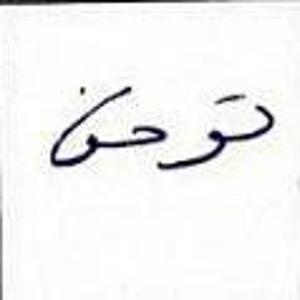 توحن